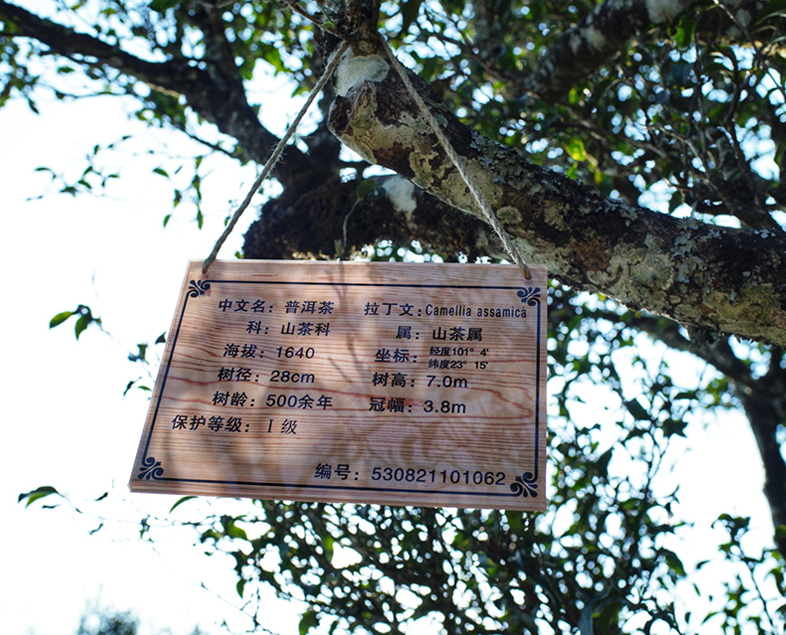 中文名：普洱茶 拉丁文：Camellia assamica
科：山茶科 属：山茶属
海拔：1640 坐标：经度101° 4'
纬度23° 15'
树径：28cm 树高：7.0m
树龄：500余年 冠幅：3.8m
保护等级：Ⅰ级
编号：530821101062